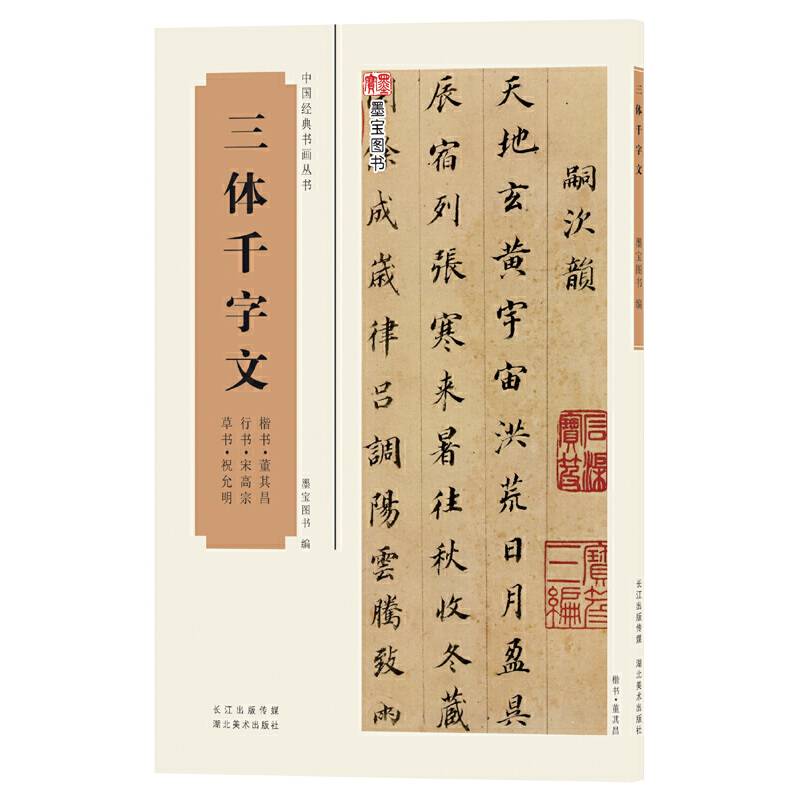 中国经典书画丛书
三体千字文
楷书·董其昌
行书·宋高宗
草书·祝允明
墨宝图书 编
长江出版传媒
湖北美术出版社
墨寶
墨宝图书
嗣次韻
天地玄黃宇宙洪荒日月盈昃
辰宿列張寒来暑往秋收冬藏
閏餘成歲律呂調陽雲騰致雨
石渠寶笈
寶笈三編
楷书·董其昌
三体千字文
墨宝图书 编
长江出版传媒 湖北美术出版社